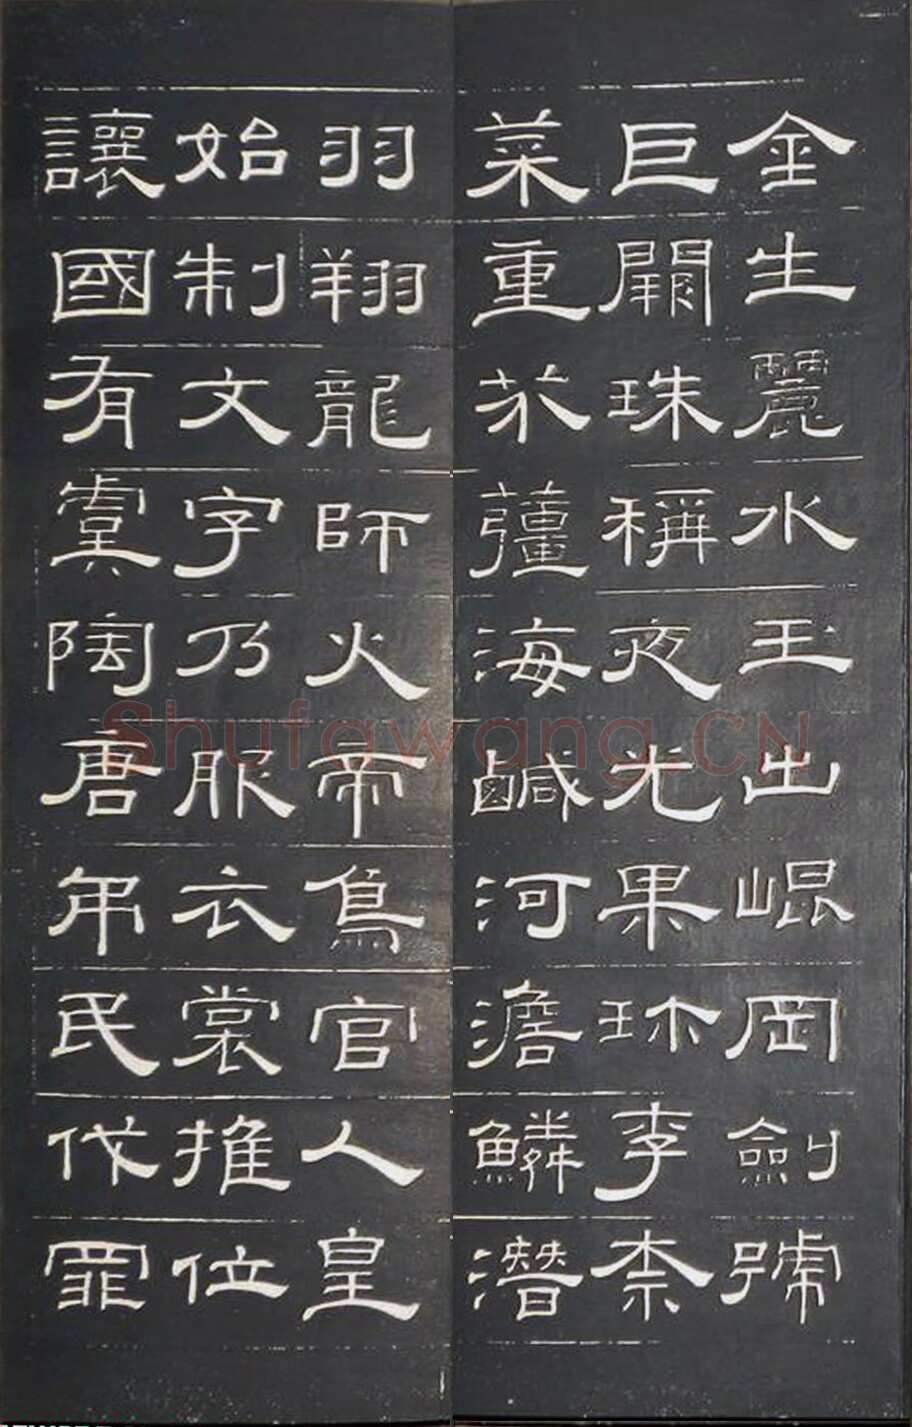 金生麗水玉出崐岡劍號
巨闕珠稱夜光果珎李柰
菜重芥薑海鹹河澹鱗潛
羽翔龍師火帝鳥官人皇
始制文字乃服衣裳推位
讓國有虞陶唐弔民伐罪
Shufawang.CN